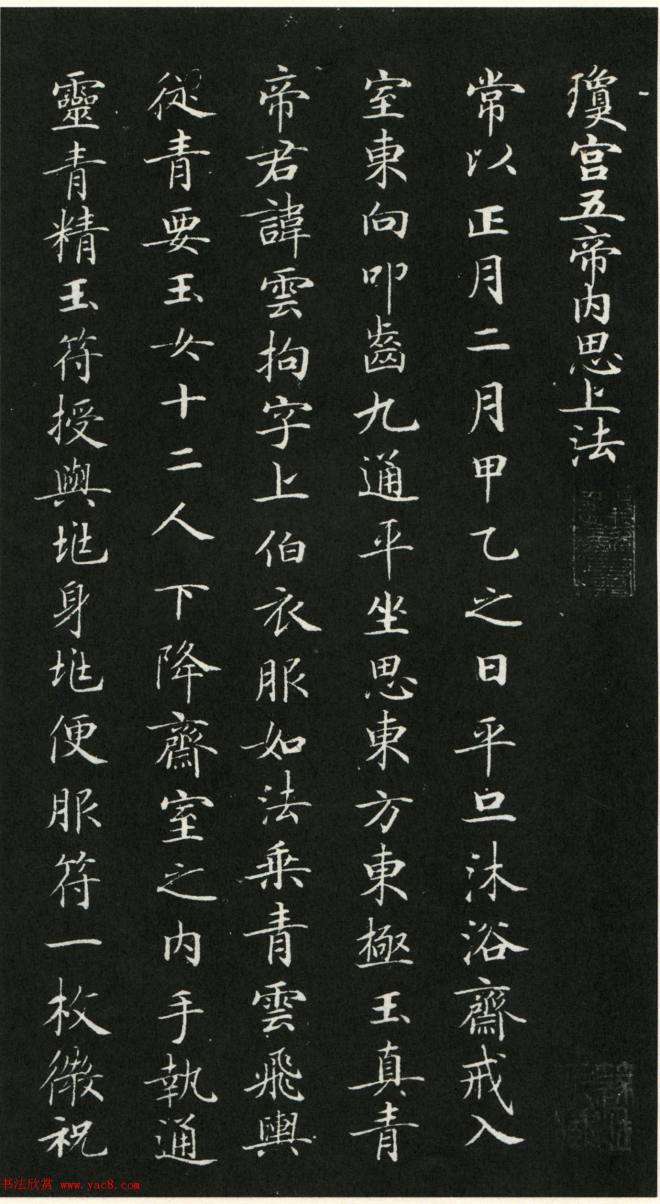 瓊宫五帝内思上法
常以正月二月甲乙之日平旦沐浴齋戒入
室東向叩齒九通平坐思東方東極玉真青
帝君諱雲拘字上伯衣服如法乗青雲飛輿
從青要玉女十二人下降齋室之内手執通
靈青精玉符授與垪身垪便服符一枚微祝
书法欣赏 www.yac8.com